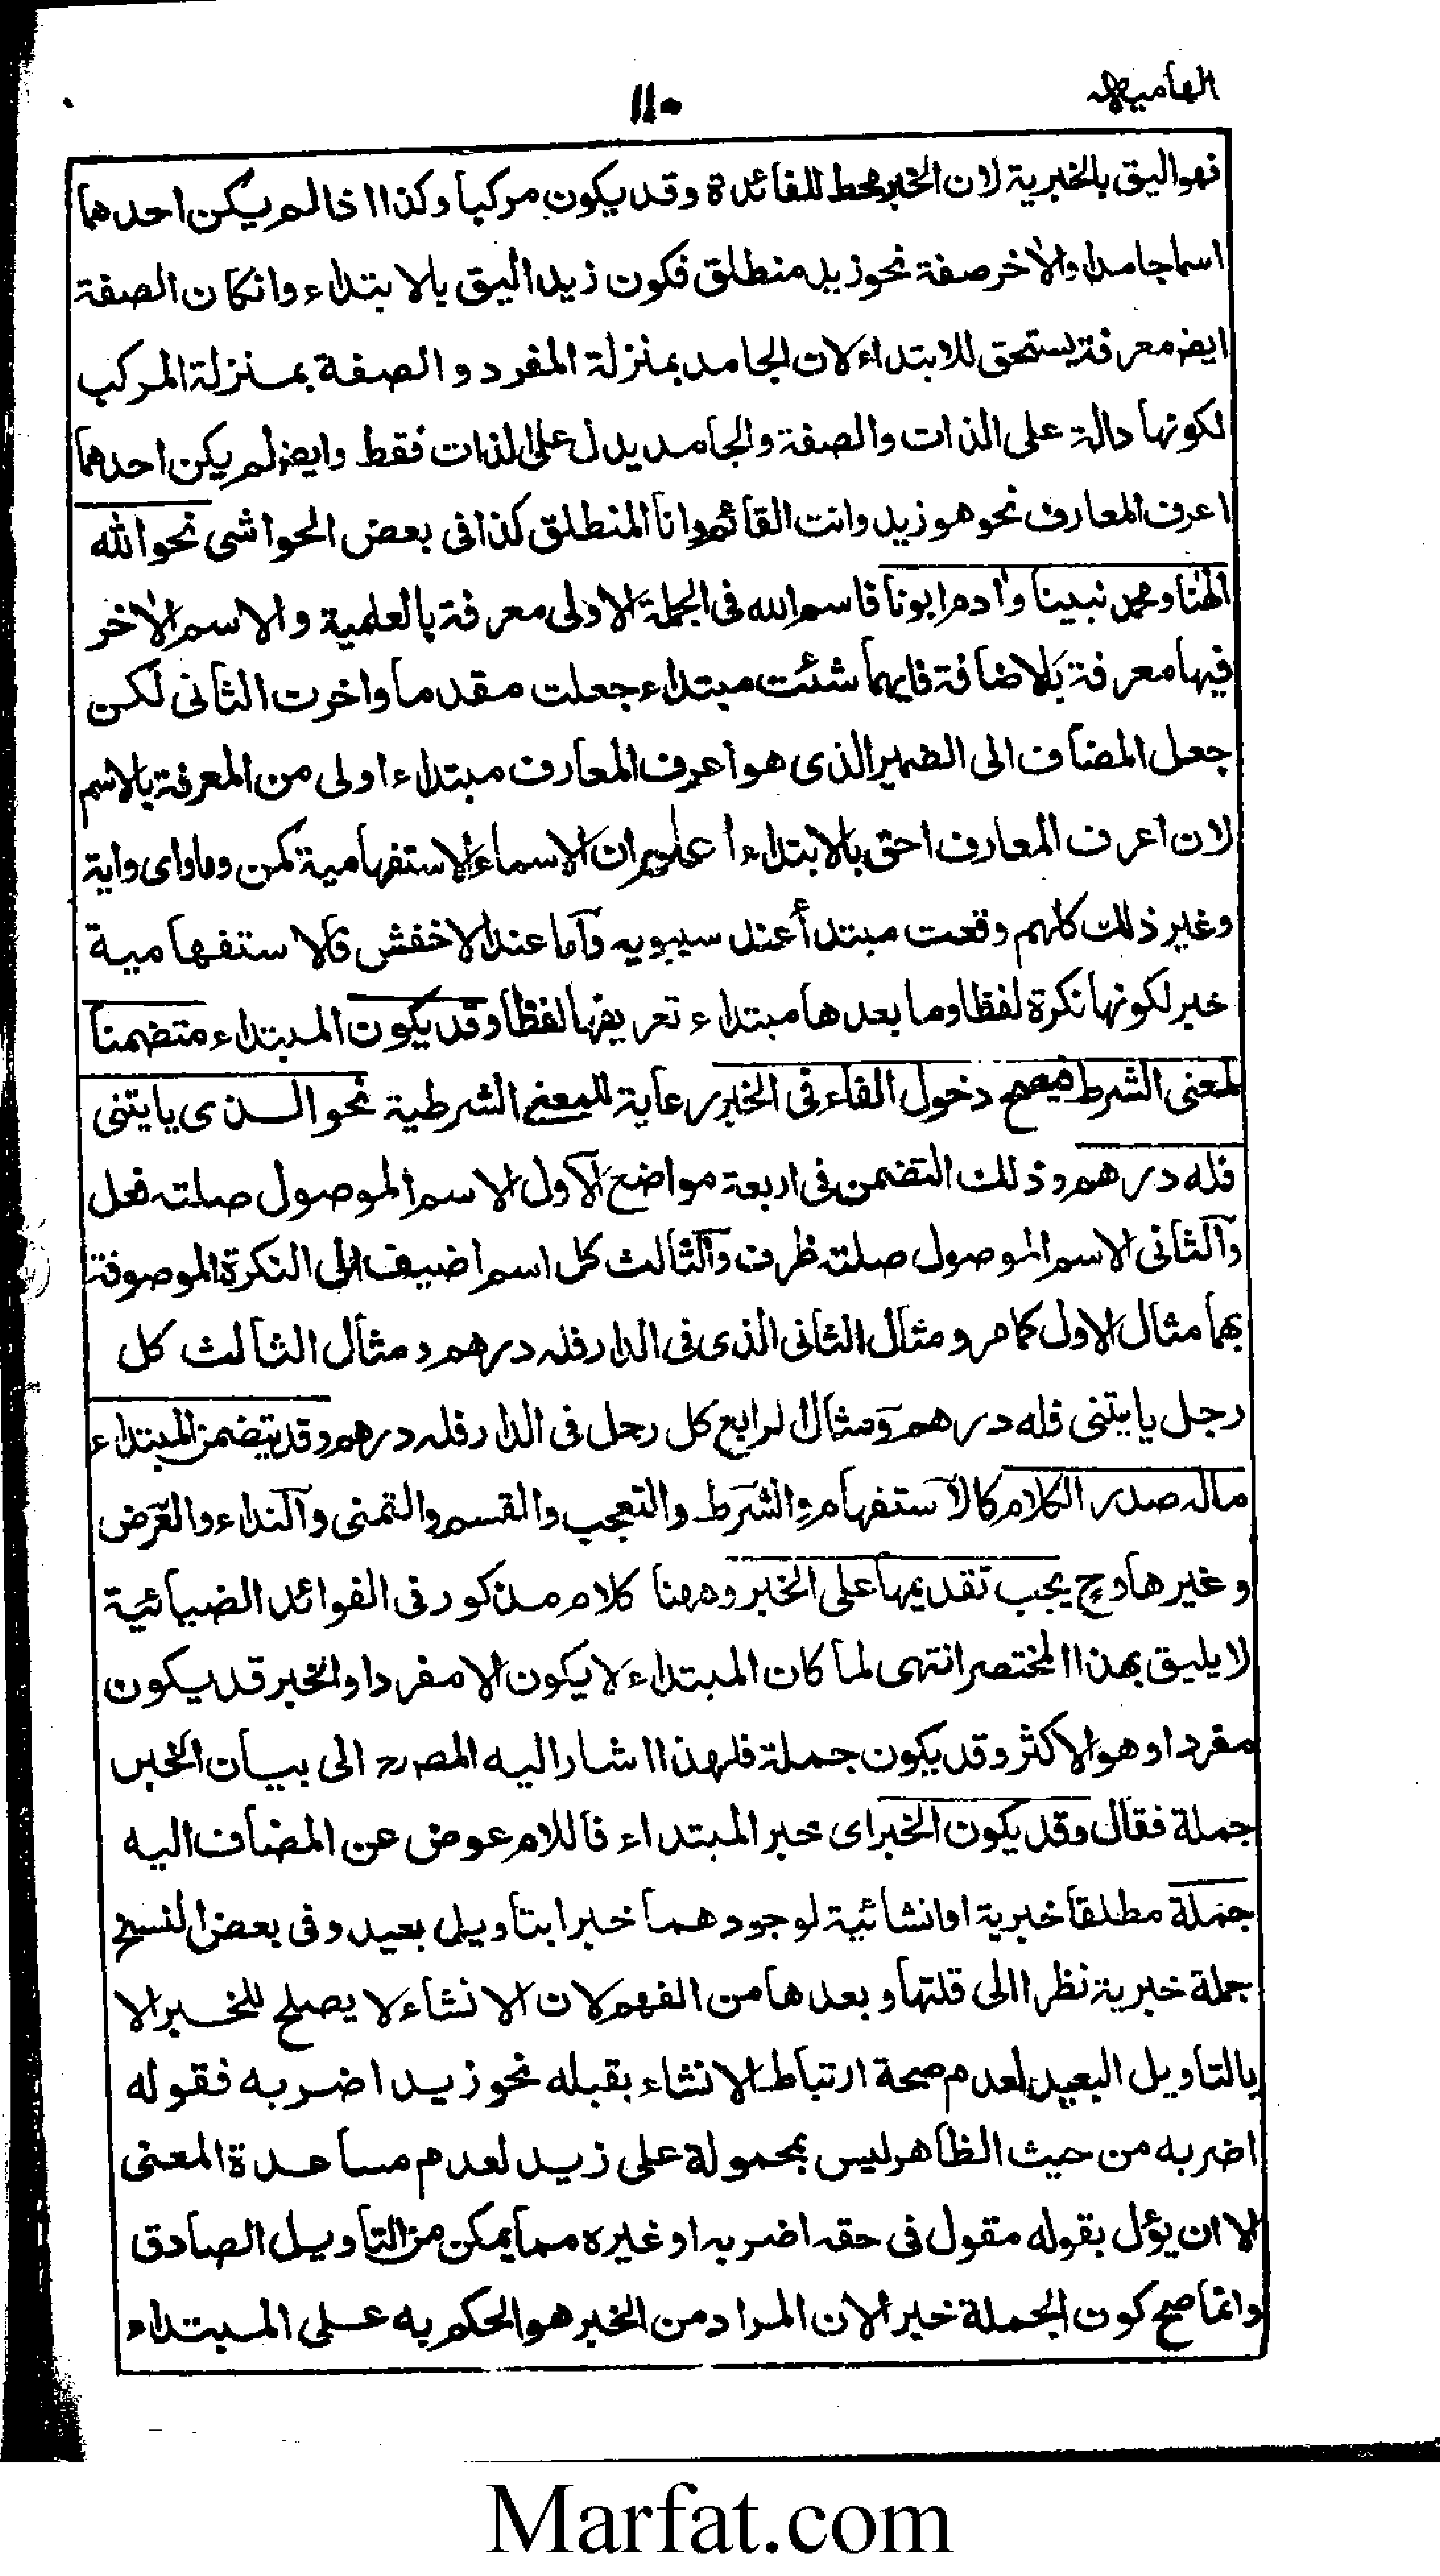 الهاميه
١١٠
فهو اليق بالخبرية لان الخبر محط للفائدة وقد يكون مركبا وكذا اذا لم يكن احدهما
اسما جامدا والاخر صفة نحو زيد منطلق فكون زيد اليق بالابتداء وانكان الصفة
ايضا معرفة يستحق للابتداء لان الجامد بمنزلة المفرد والصفة بمنزلة المركب
لكونها دالة على الذات والصفة والجامد يدل على الذات فقط وايضا لم يكن احدهما
اعرف المعارف نحو هو زيد وانت القائم وانا المنطلق كذا في بعض الحواشى نحو الله
الهنا ومحمد نبينا وادم ابونا فاسم الله فى الجملة الاولى معرفة بالعلمية والاسم الاخر
فيها معرفة بالاضافة فايهما شئت مبتداء جعلت مقدما واخرت الثانى لكن
جعل المضاف الى الضمير الذى هو اعرف المعارف مبتداء اولى من المعرفة بالاسم
لان اعرف المعارف احق بالابتداء اعلم ان الاسماء الاستفهامية كمن وما واى واية
وغير ذلك كلهم وقعت مبتدأ عند سيبويه واما عند الاخفش فالاستفهامية
خبر لكونها نكرة لفظا وما بعدها مبتداء تعريفها لفظا وقد يكون المبتداء متضمنا
لمعنى الشرط فيصح دخول الفاء فى الخبر رعاية للمعنى الشرطية نحو الذى ياتينى
فله درهم وذلك التضمن فى اربعة مواضع الاول الاسم الموصول صلته فعل
والثانى الاسم الموصول صلته ظرف والثالث كل اسم اضيف الى النكرة الموصوفة
بهما مثال الاول كما مر ومثال الثانى الذى فى الدار فله درهم ومثال الثالث كل
رجل ياتينى فله درهم ومثال الرابع كل رجل فى الدار فله درهم وقد يتضمن المبتداء
ماله صدر الكلام كالاستفهام والشرط والتعجب والقسم والتمنى والنداء والعرض
وغيرها وح يجب تقديمها على الخبر وههنا كلام مذكور فى الفوائد الضيائية
لا يليق بهذا المختصر انتهى لما كان المبتداء لا يكون الا مفردا والخبر قد يكون
مفردا وهو الاكثر وقد يكون جملة فلهذا اشار اليه المصرح الى بيان الخبر
جملة فقال وقد يكون الخبر اى خبر المبتداء فاللام عوض عن المضاف اليه
جملة مطلقا خبرية او انشائية لوجودهما خبرا بتاويل بعيد وفى بعض النسخ
جملة خبرية نظرا الى قلتها وبعدها من الفهم لان الانشاء لا يصلح للخبر الا
بالتاويل البعيد لعدم صحة ارتباط الانشاء بقبله نحو زيد اضربه فقوله
اضربه من حيث الظاهر ليس بمحمولة على زيد لعدم مساعدة المعنى
الا ان يؤل بقوله مقول فى حقه اضربه او غيره مما يمكن من التاويل الصادق
وانما صح كون الجملة خبرا لان المراد من الخبر هو الحكم به على المبتداء
Marfat.com